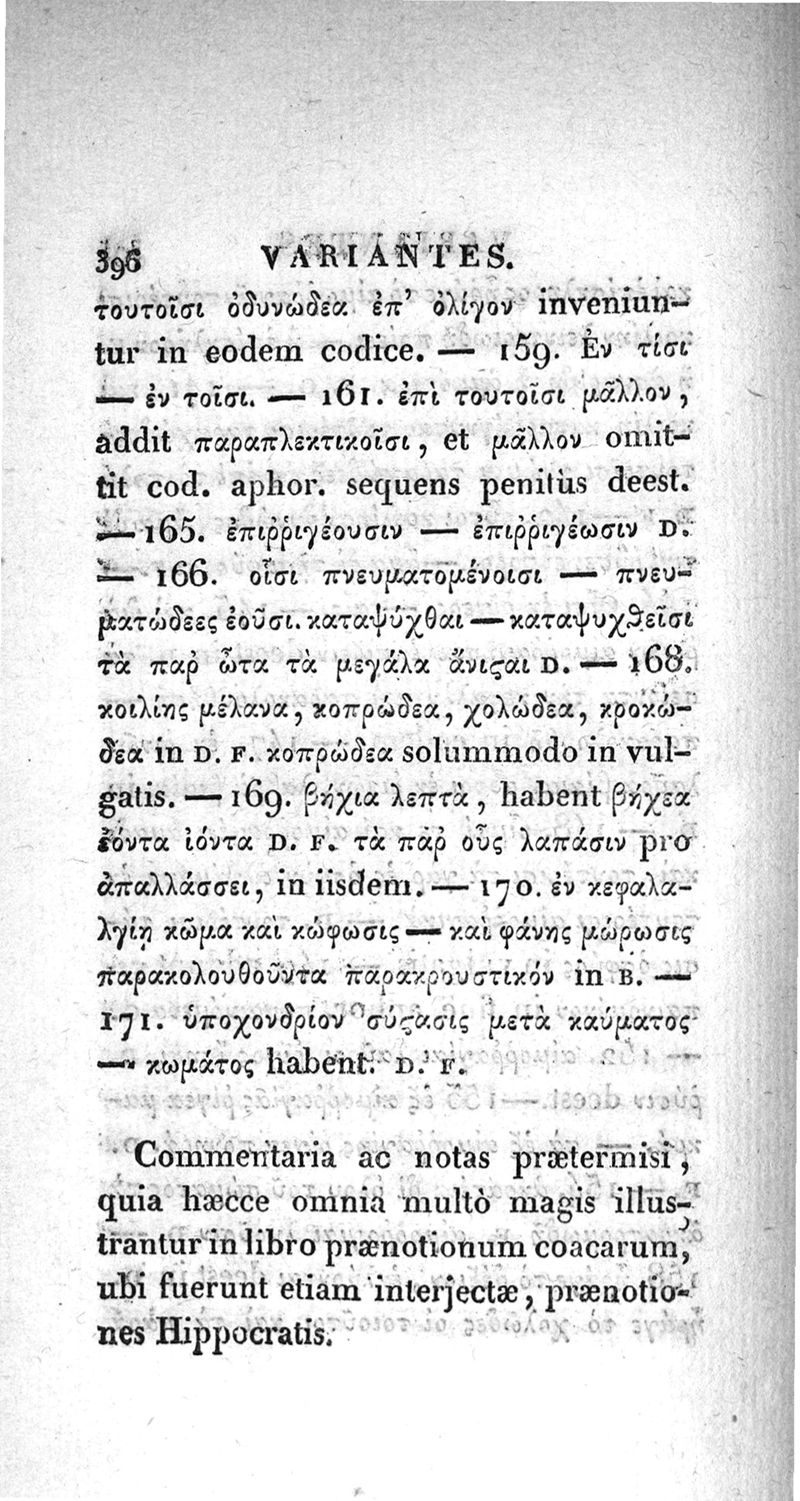 396 VARIANTES.
τουτοῖσι ὀδυνώδεα ἐπ’ ὀλίγον inveniun-
tur in eodem codice. — 159. Ἐν τίσι
— ἐν τοῖσι. — 161. ἐπὶ τουτοῖσι μᾶλλον,
addit παραπλεκτικοῖσι, et μᾶλλον omit-
tit cod. aphor. sequens penitùs deest.
— 165. ἐπιῤῥιγέουσιν — ἐπιῤῥιγέωσιν D.
— 166. οἷσι πνευματομένοισι — πνευ-
ματώδεες ἐοῦσι. καταψύχθαι — καταψυχθεῖσι
τὰ παρ ὦτα τὰ μεγάλα ἄνιςαι D. — 168.
κοιλίης μέλανα, κοπρώδεα, χολώδεα, κροκώ-
δεα in D. F. κοπρώδεα solummodo in vul-
gatis. — 169. βήχια λεπτὰ, habent βήχεα
ἐόντα ἰόντα D. F. τὰ παρ οὖς λαπάσιν pro
ἀπαλλάσσει, in iisdem. — 170. ἐν κεφαλα-
λγίῃ κῶμα καὶ κώφωσις — καὶ φάνης μώρωσις
παρακολουθοῦντα παρακρουστικόν in B. —
171. ὑποχονδρίον σύςασις μετὰ καύματος
— κωμάτος habent. D. F.
Commentaria ac notas prætermisi,
quia hæcce omnia multò magis illus-
trantur in libro prænotionum coacarum,
ubi fuerunt etiam interjectæ, prænotio-
nes Hippocratis.